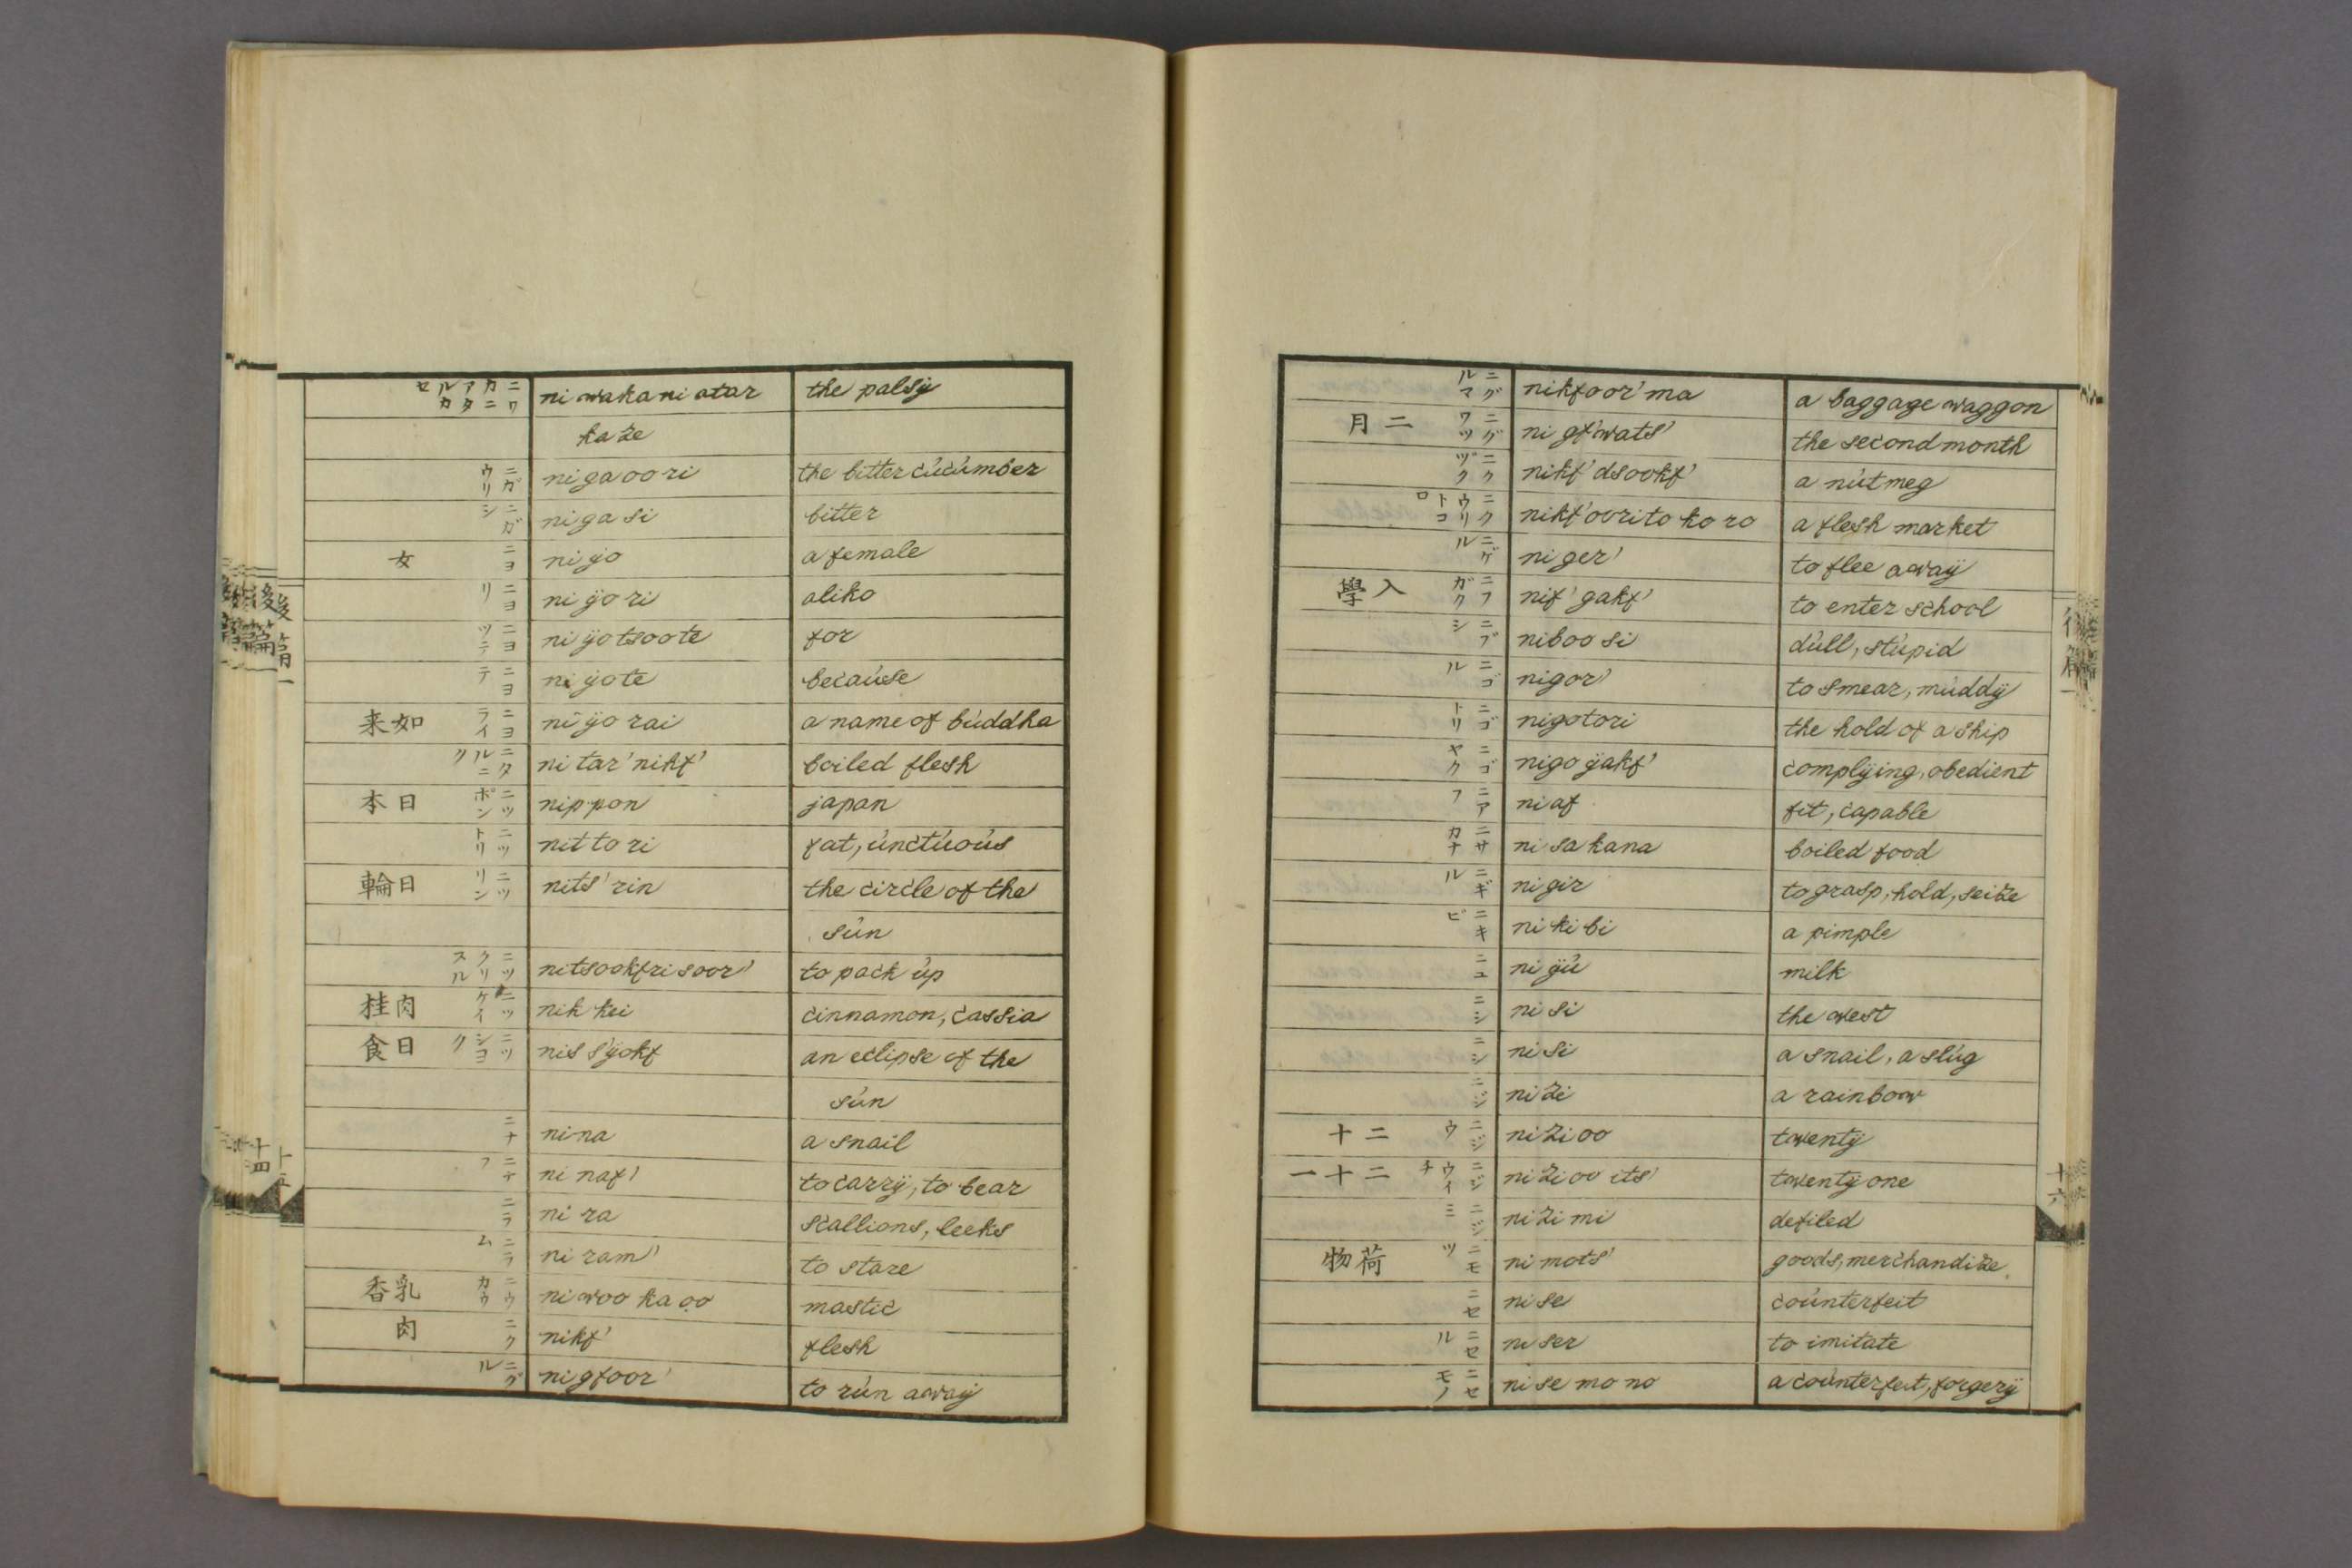 ニワカニアタルカセ ni waka ni atar the palsÿ
kaze
ニガウリ nigaoori the bitter cúcúmber
ニガシ nigasi bitter
女 ニヨ niÿo a female
ニヨリ niÿori alike
ニヨツテ niÿotsoote for
ニヨテ niÿote becaúse
来如 ニヨライ niÿorai a name of búddha
ニタルニク nitar'nikf' boiled flesh
本日 ニツポン nippon japan
ニツトリ nittori fat, únctúoús
輪日 ニツリン nits'rin the circle of the
sún
ニツクリスル nitsookfrisoor' to pack úp
桂肉 ニツケイ nikkei cinnamon, cassia
食日 ニツシヨク niss'ÿokf an eclipse of the
sún
ニナ nina a snail
ニナフ ninaf' to carrÿ, to bear
ニラ nira scallions, leeks
ニラム niram' to stare
香乳 ニウカウ niwookaoo mastic
肉 ニク nikf' flesh
ニグル nigfoor' to rún awaÿ
後篇一
ニグルマ nikfoor'ma a baggage waggon
月二 ニグワツ nigf'wats' the second month
ニクヅク nikf'dsookf' a nútmeg
ニクウリトコロ nikf'ooritokoro a flesh market
ニゲル niger' to flee awaÿ
學入 ニフガク nif'gakf' to enter school
ニブシ niboosi dúll, stúpid
ニゴル nigor' to smear, múddÿ
ニゴトリ nigotori the hold of a ship
ニゴヤク nigoÿakf' complÿing, obedient
ニアフ niaf fit, capable
ニサカナ nisakana boiled food
ニギル nigir to grasp, hold, seize
ニキビ nikibi a pimple
ニユ niÿú milk
ニシ nisi the west
ニシ nisi a snail, a slúg
ニジ nizi a rainbow
十二 ニジウ nizioo twentÿ
一十二 ニジウイチ nizioo its' twentÿ one
ニジミ nizimi defiled
物荷 ニモツ nimots' goods, merchandize
ニセ nise coúnterfeit
ニセル niser to imitate
ニセモノ nisemono a coúnterfeit, forgerÿ
十六